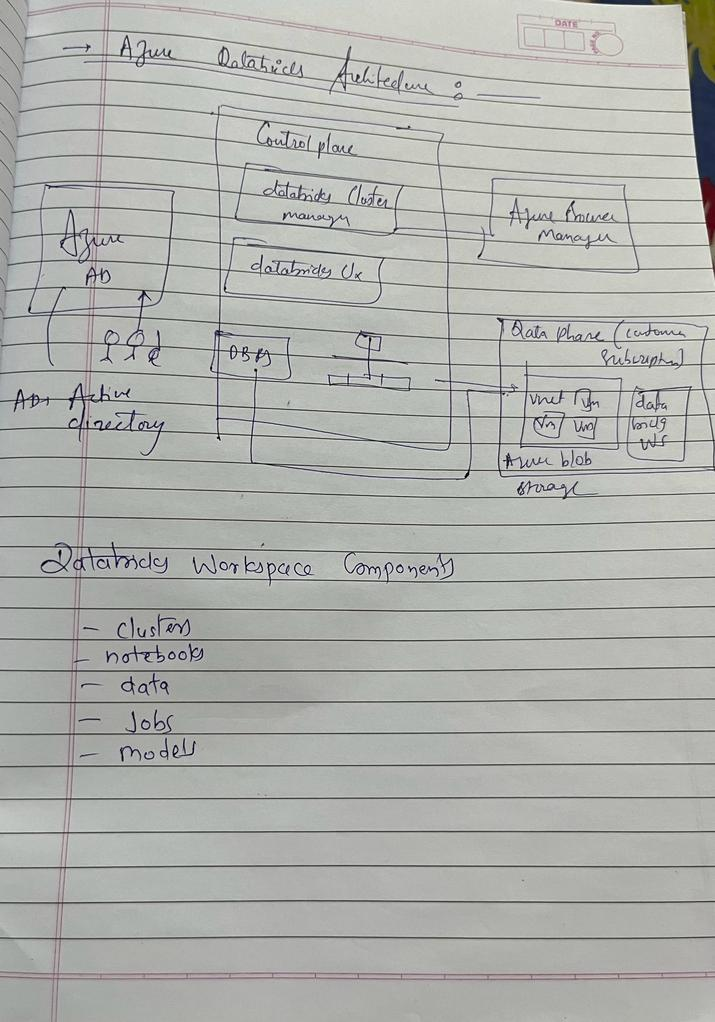 DATE
→ Azure Databricks Architecture :
Control plane
databricks Cluster
manager
Azure
Manager
Azure
AD
databricks Ux
DBFS
Data phase (customer
subscription)
vnet vm
vm vm
data
bricks
WS
Azure blob
storage
AD→ Active
directory
Databricks Workspace Components
- clusters
- notebooks
- data
- Jobs
- models